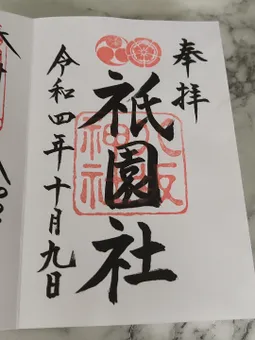 奉拝
祇園社
八坂
神社
令和四年十月九日